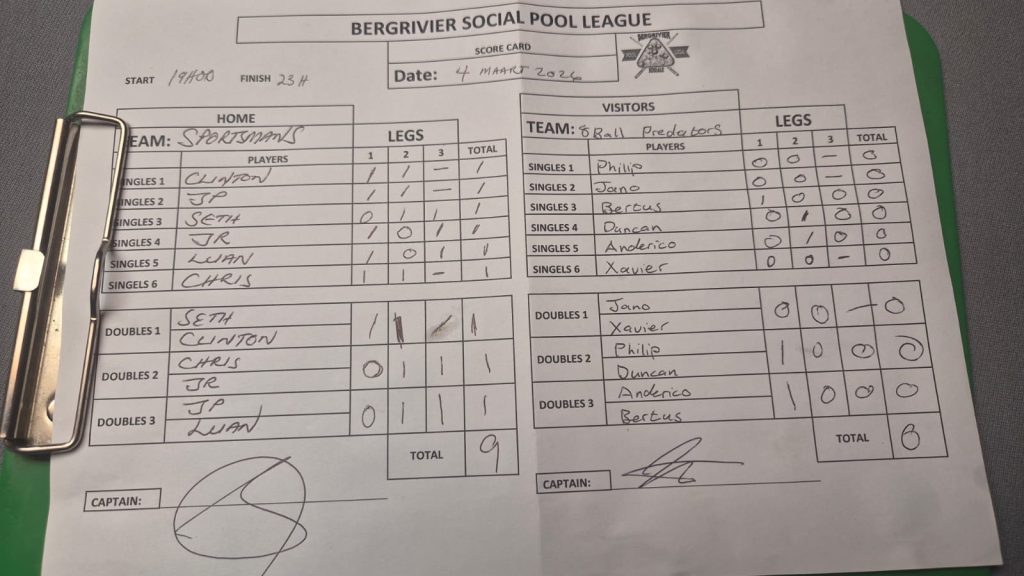 BERGRIVIER SOCIAL POOL LEAGUE
SCORE CARD
BERGRIVIER
START 19H00 FINISH 23H Date: 4 MAART 2026
HOME
TEAM: SPORTSMANS LEGS
PLAYERS 1 2 3 TOTAL
SINGLES 1 CLINTON 1 1 – 1
SINGLES 2 JP 1 1 – 1
SINGLES 3 SETH 0 1 1 1
SINGLES 4 JR 1 0 1 1
SINGLES 5 LUAN 1 0 1 1
SINGELS 6 CHRIS 1 1 – 1
DOUBLES 1 SETH 1 1 – 1
CLINTON
DOUBLES 2 CHRIS 0 1 1 1
JR
DOUBLES 3 JP 0 1 1 1
LUAN
TOTAL 9
CAPTAIN:
VISITORS
TEAM: 8Ball Predators LEGS
PLAYERS 1 2 3 TOTAL
SINGLES 1 Philip 0 0 – 0
SINGLES 2 Jano 0 0 – 0
SINGLES 3 Bertus 1 0 0 0
SINGLES 4 Duncan 0 1 0 0
SINGLES 5 Anderico 0 1 0 0
SINGELS 6 Xavier 0 0 – 0
DOUBLES 1 Jano 0 0 – 0
Xavier
DOUBLES 2 Philip 1 0 0 0
Duncan
DOUBLES 3 Anderico 1 0 0 0
Bertus
TOTAL 0
CAPTAIN: